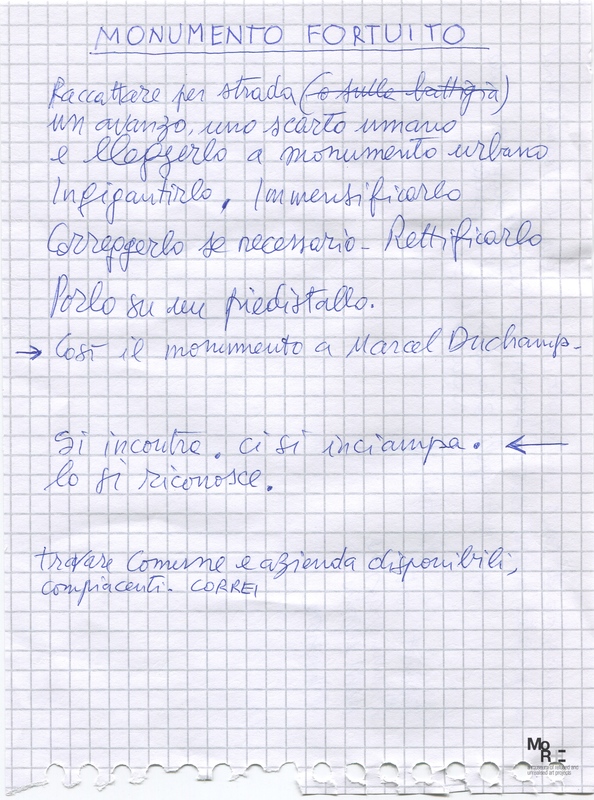 MONUMENTO FORTUITO
Raccattare per strada (o sulla battigia)
un avanzo, uno scarto umano
e eleggerlo a monumento urbano
Ingigantirlo, Immensificarlo
Correggerlo se necessario - Rettificarlo
Porlo su un piedistallo.
→ Così il monumento a Marcel Duchamp -
Si incontra. ci si inciampa. ←
lo si riconosce.
trovare Comune e azienda disponibili,
compiacenti. CORREI
MoRE
a museum of refused and
unrealised art projects